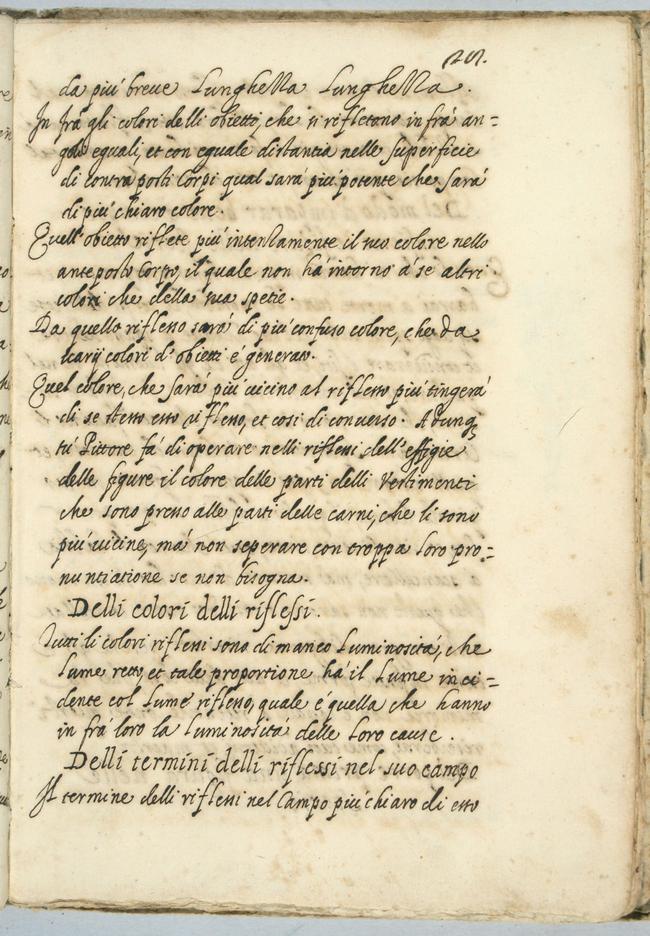 da più breue Lunghezza Lunghezza.
In frà gli colori delli obietti, che si rifletono in frà an=
goli eguali, et con eguale distantia nelle superficie
di contra posti Corpi qual sarà più potente che sarà
di più chiaro colore.
Quell' obietto riflete più intensamente il suo colore nello
anteposto Corpo, il quale non hà intorno à se altri
colori che della sua spetie.
Da quello riflesso sarà di più confuso colore, che da
uarij colori d' obietti è generato.
Quel colore, che sarà più uicino al riflesso più tingerà
di se stesso esso riflesso, et così di conuerso. Adunq
tù Pittore fà di operare nelli riflessi dell' effigie
delle figure il colore delle parti delli Vestimenti
che sono presso alle parti delle carni, che li sono
più uicine, mà non seperare con troppa loro pro=
nuntiatione se non bisogna.
Delli colori delli riflessi.
Tutti li colori riflessi sono di manco Luminosità, che
Lume retto, et tale proportione hà il Lume inci=
dente col Lume riflesso, quale è quella che hanno
in frà loro la luminosità delle Loro cause.
Delli termini delli riflessi nel suo campo
Il termine delli riflessi nel Campo più chiaro di esso